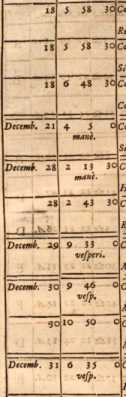 18 5 58 30
18 5 58 30
18 6 48 30
Decemb. 21 4 5 0
manè.
Decemb. 28 2 13 30
manè.
28 2 43 30
Decemb. 29 9 33 0
veſperi.
Decemb. 30 9 46 0
veſp.
30 10 50 0
Decemb. 31 6 35 0
veſp.